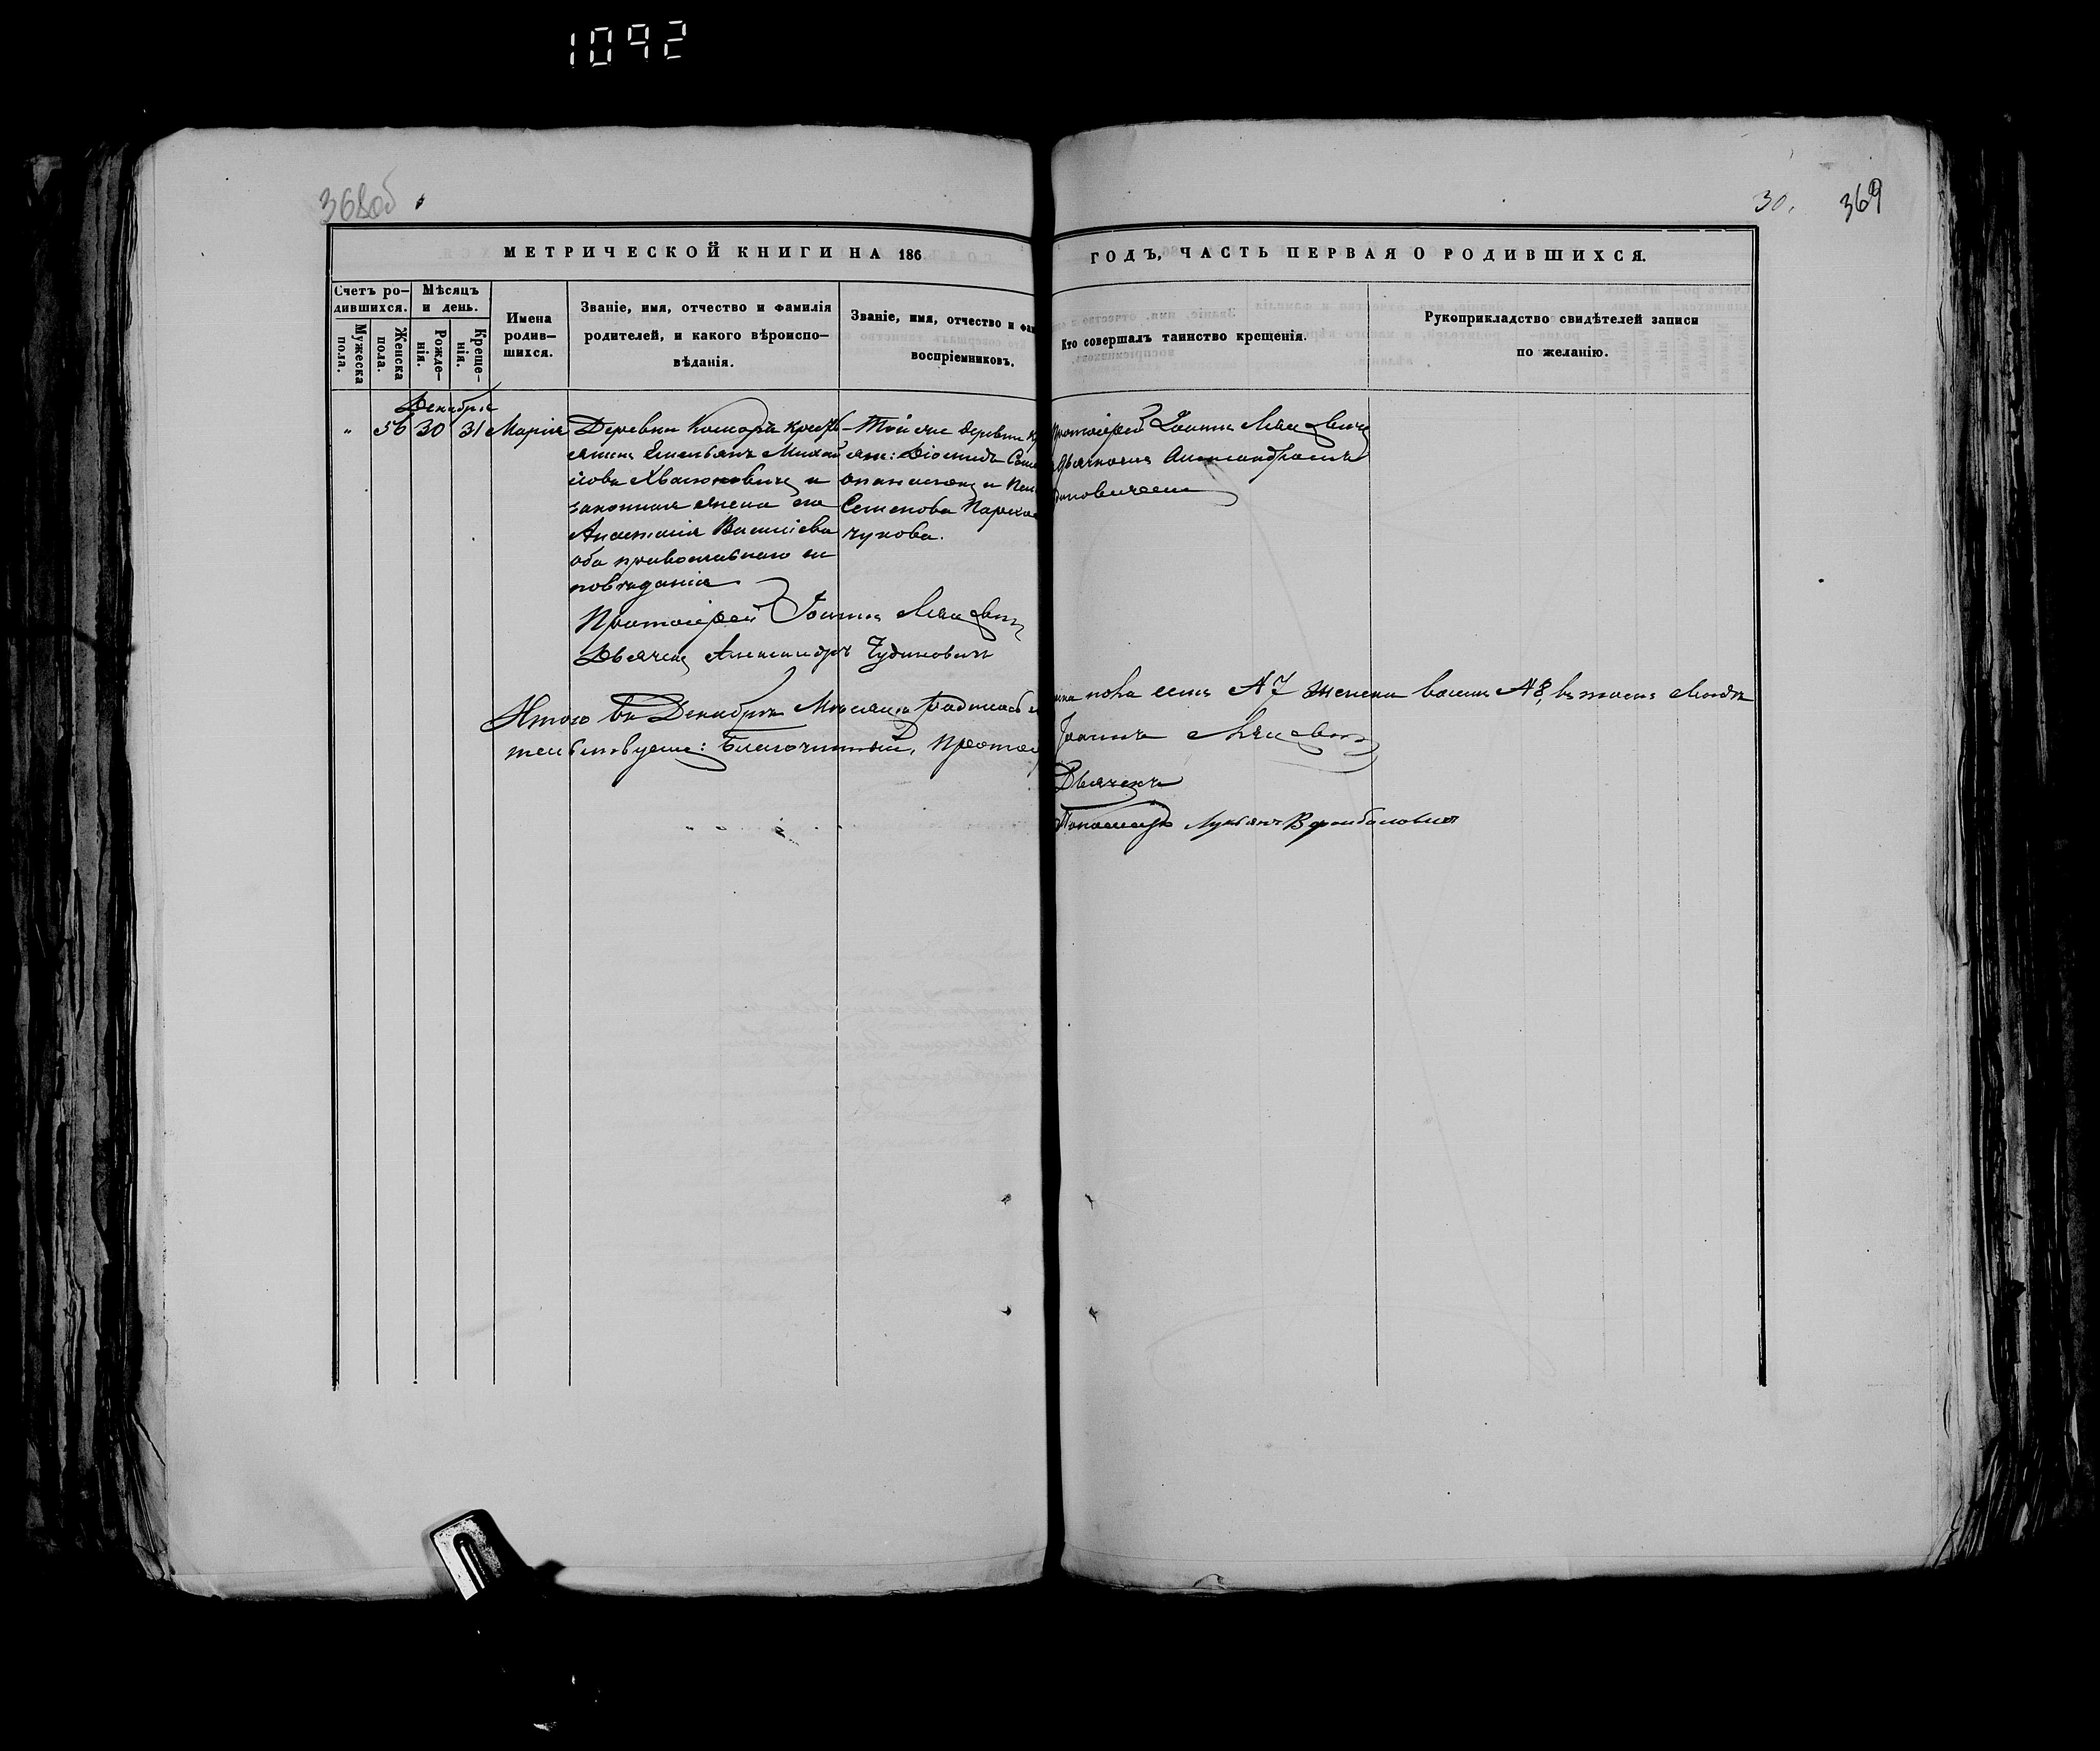 1092
368об
30.
369
МЕТРИЧЕСКОЙ КНИГИ НА 186
ГОДЪ, ЧАСТЬ ПЕРВАЯ О РОДИВШИХСЯ.
Счетъ ро-
дившихся.
Мужеска
пола.
Женска
пола.
Мѣсяцъ
и день.
Рожде-
нія.
Креще-
нія.
Имена
родив-
шихся.
Званіе, имя, отчество и фамилія
родителей, и какого вѣроиспо-
вѣданія.
Званіе, имя, отчество и фам
воспріемниковъ.
Кто совершалъ таинство крещенія.
Рукоприкладство свидѣтелей записи
по желанію.
Декабрь
„ 56 30 31 Марія
Деревни Комора крестья
янинъ Емельянъ Михай
лова и
законная жена его
Анастасія Василіева
оба православнаго ис
повѣданія
Той же деревни кр
Діомидъ Семе
и
Семенова
чукова.
Протоіерей Іоаннъ
дьячкомъ Александромъ
диновичемъ
Протоіерей Іоаннъ
Дьячекъ Александръ Чудиновичъ
Итого въ Декабрѣ Мѣсяцѣ родилось м
пола семь № 7 женска восемь № 8, въ томъ
тельствуемъ: Благочинный, Протоі
Іоаннъ
Дьячекъ
Пономарь Лукіанъ